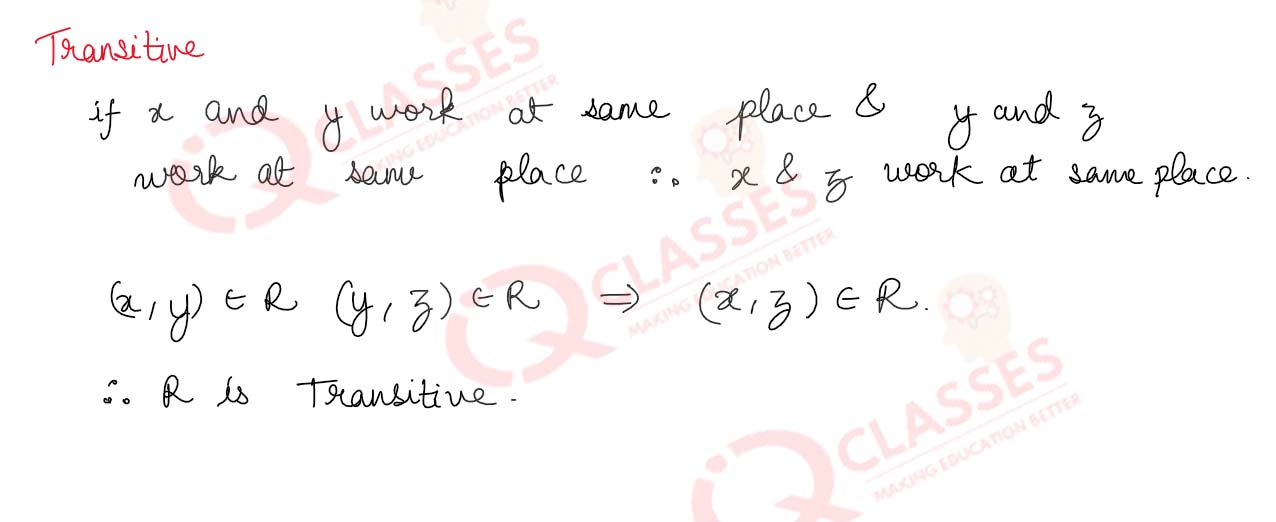 Transitive
if x and y work at same place & y and z
work at same place ∴ x & z work at same place.
(x, y) ∈ R (y, z) ∈ R ⇒ (x, z) ∈ R.
∴ R is Transitive.
CLASSES
MAKING EDUCATION BETTER
CLASSES
MAKING EDUCATION BETTER
CLASSES
MAKING EDUCATION BETTER